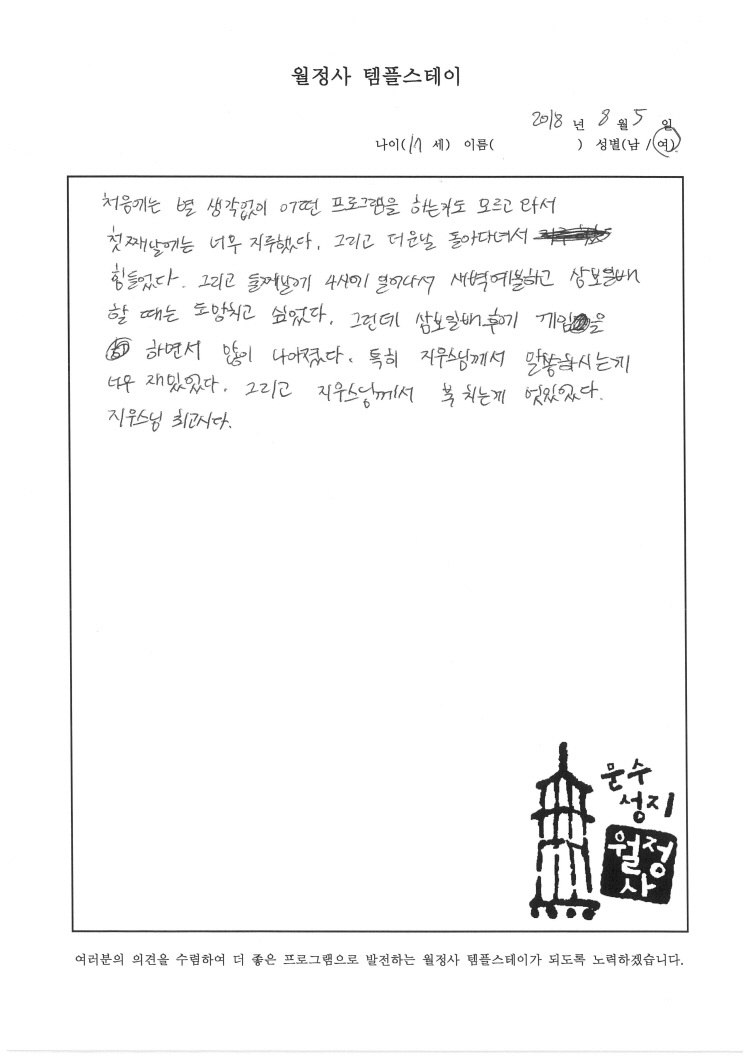 월정사 템플스테이
2018 년 8 월 5 일
나이(17 세) 이름( ) 성별(남 / 여)
처음에는 별 생각없이 어떤 프로그램을 하는지도 모르고 와서
첫째날에는 너무 지루했다. 그리고 더운날 돌아다녀서
힘들었다. 그리고 둘째날에 4시에 일어나서 새벽예불하고 삼보일배
할 때는 도망치고 싶었다. 그런데 삼보일배 후에 게임을
하면서 많이 나아졌다. 특히 지우스님께서 말씀하시는게
너무 재밌었다. 그리고 지우스님께서 북 치는게 멋있었다.
지우스님 최고시다.
문수
성지
월정
사
여러분의 의견을 수렴하여 더 좋은 프로그램으로 발전하는 월정사 템플스테이가 되도록 노력하겠습니다.